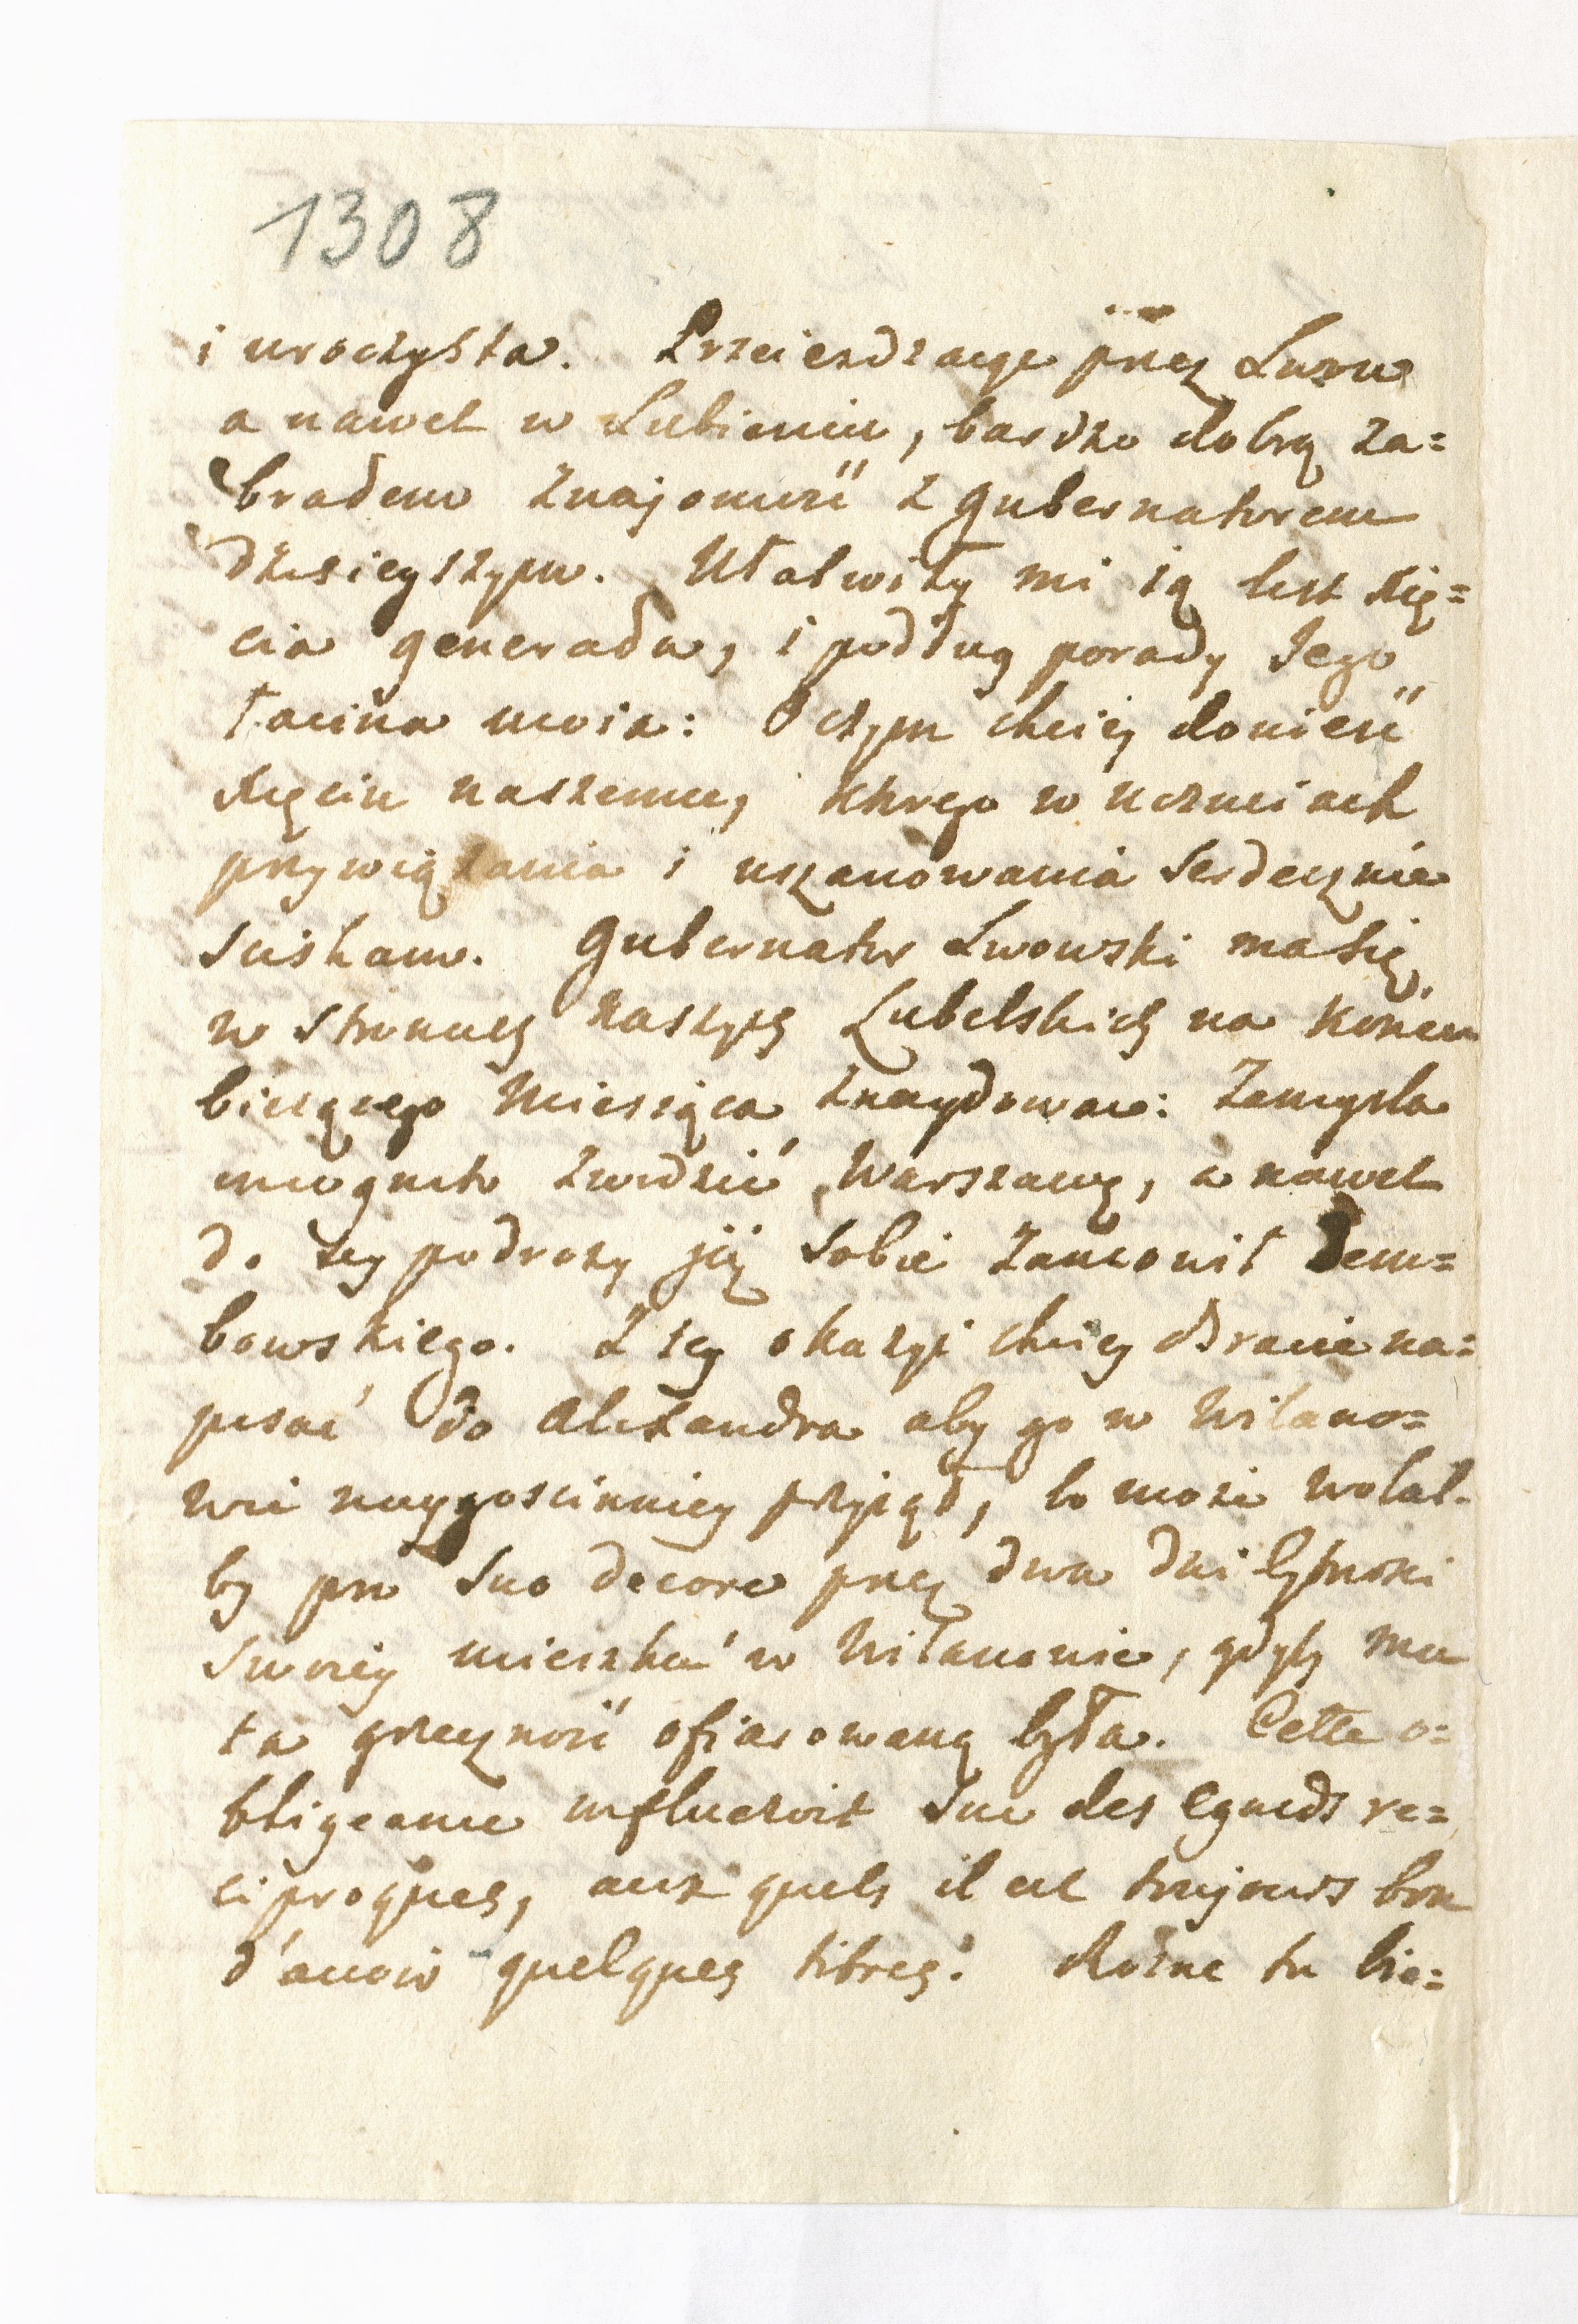 1308
i uroczysta. Przeiezdzaiąc przez Lwow
a nawet w Lubieniu, bardzo dobrą za=
brałem znajomość z gubernatorem
dzisieyszym. Ułatwiły mi ią list Xię=
cia generała, i podług porady Jego
łacina moia: O czym chciey donieść
Xięciu naszemu, ktorego w uczuciach
przywiązania i uszanowania serdecznie
sciskam. Gubernator Lwowski ma się
w stronach naszych Lubelskich na koncu
bieżącego Miesiąca znaydowac: Zamysla
incognito zwidzić Warszawę, a nawet
do tey podrozy już sobie zamowił Dem=
bowskiego. Z tey okazyi chciey Bracie na=
pisać do Alexandra aby go w Wilano=
wie naygoscinniey przyiął, bo moze wolał=
by pro suo decore przez dwa dni bytnosci
swoiey mieszkać w Wilanowie, gdyby mu
ta grzeczność ofiarowaną była. Cette o=
bligeance influeroit sur des egards re=
ciproques, aux quels il est toujours bon
d'avoir quelques titres. Rożne tu bie=